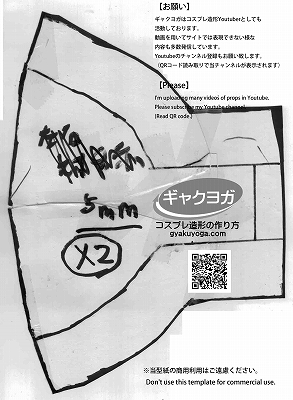 【お願い】
ギャクヨガはコスプレ造形Youtuberとしても
活動しております。
動画を用いてサイトでは表現できない様な
内容も多数発信しています。
Youtubeのチャンネル登録もお願い致します。
（QRコード読み取りで当チャンネルが表示されます）
【Please】
I'm uploading many videos of props in Youtube.
Please subscribe my Youtube channel.
(Read QR code.)
5mm
×2
ギャクヨガ
コスプレ造形の作り方
gyakuyoga.com
※当型紙の商用利用はご遠慮ください。
Don't use this template for commercial use.